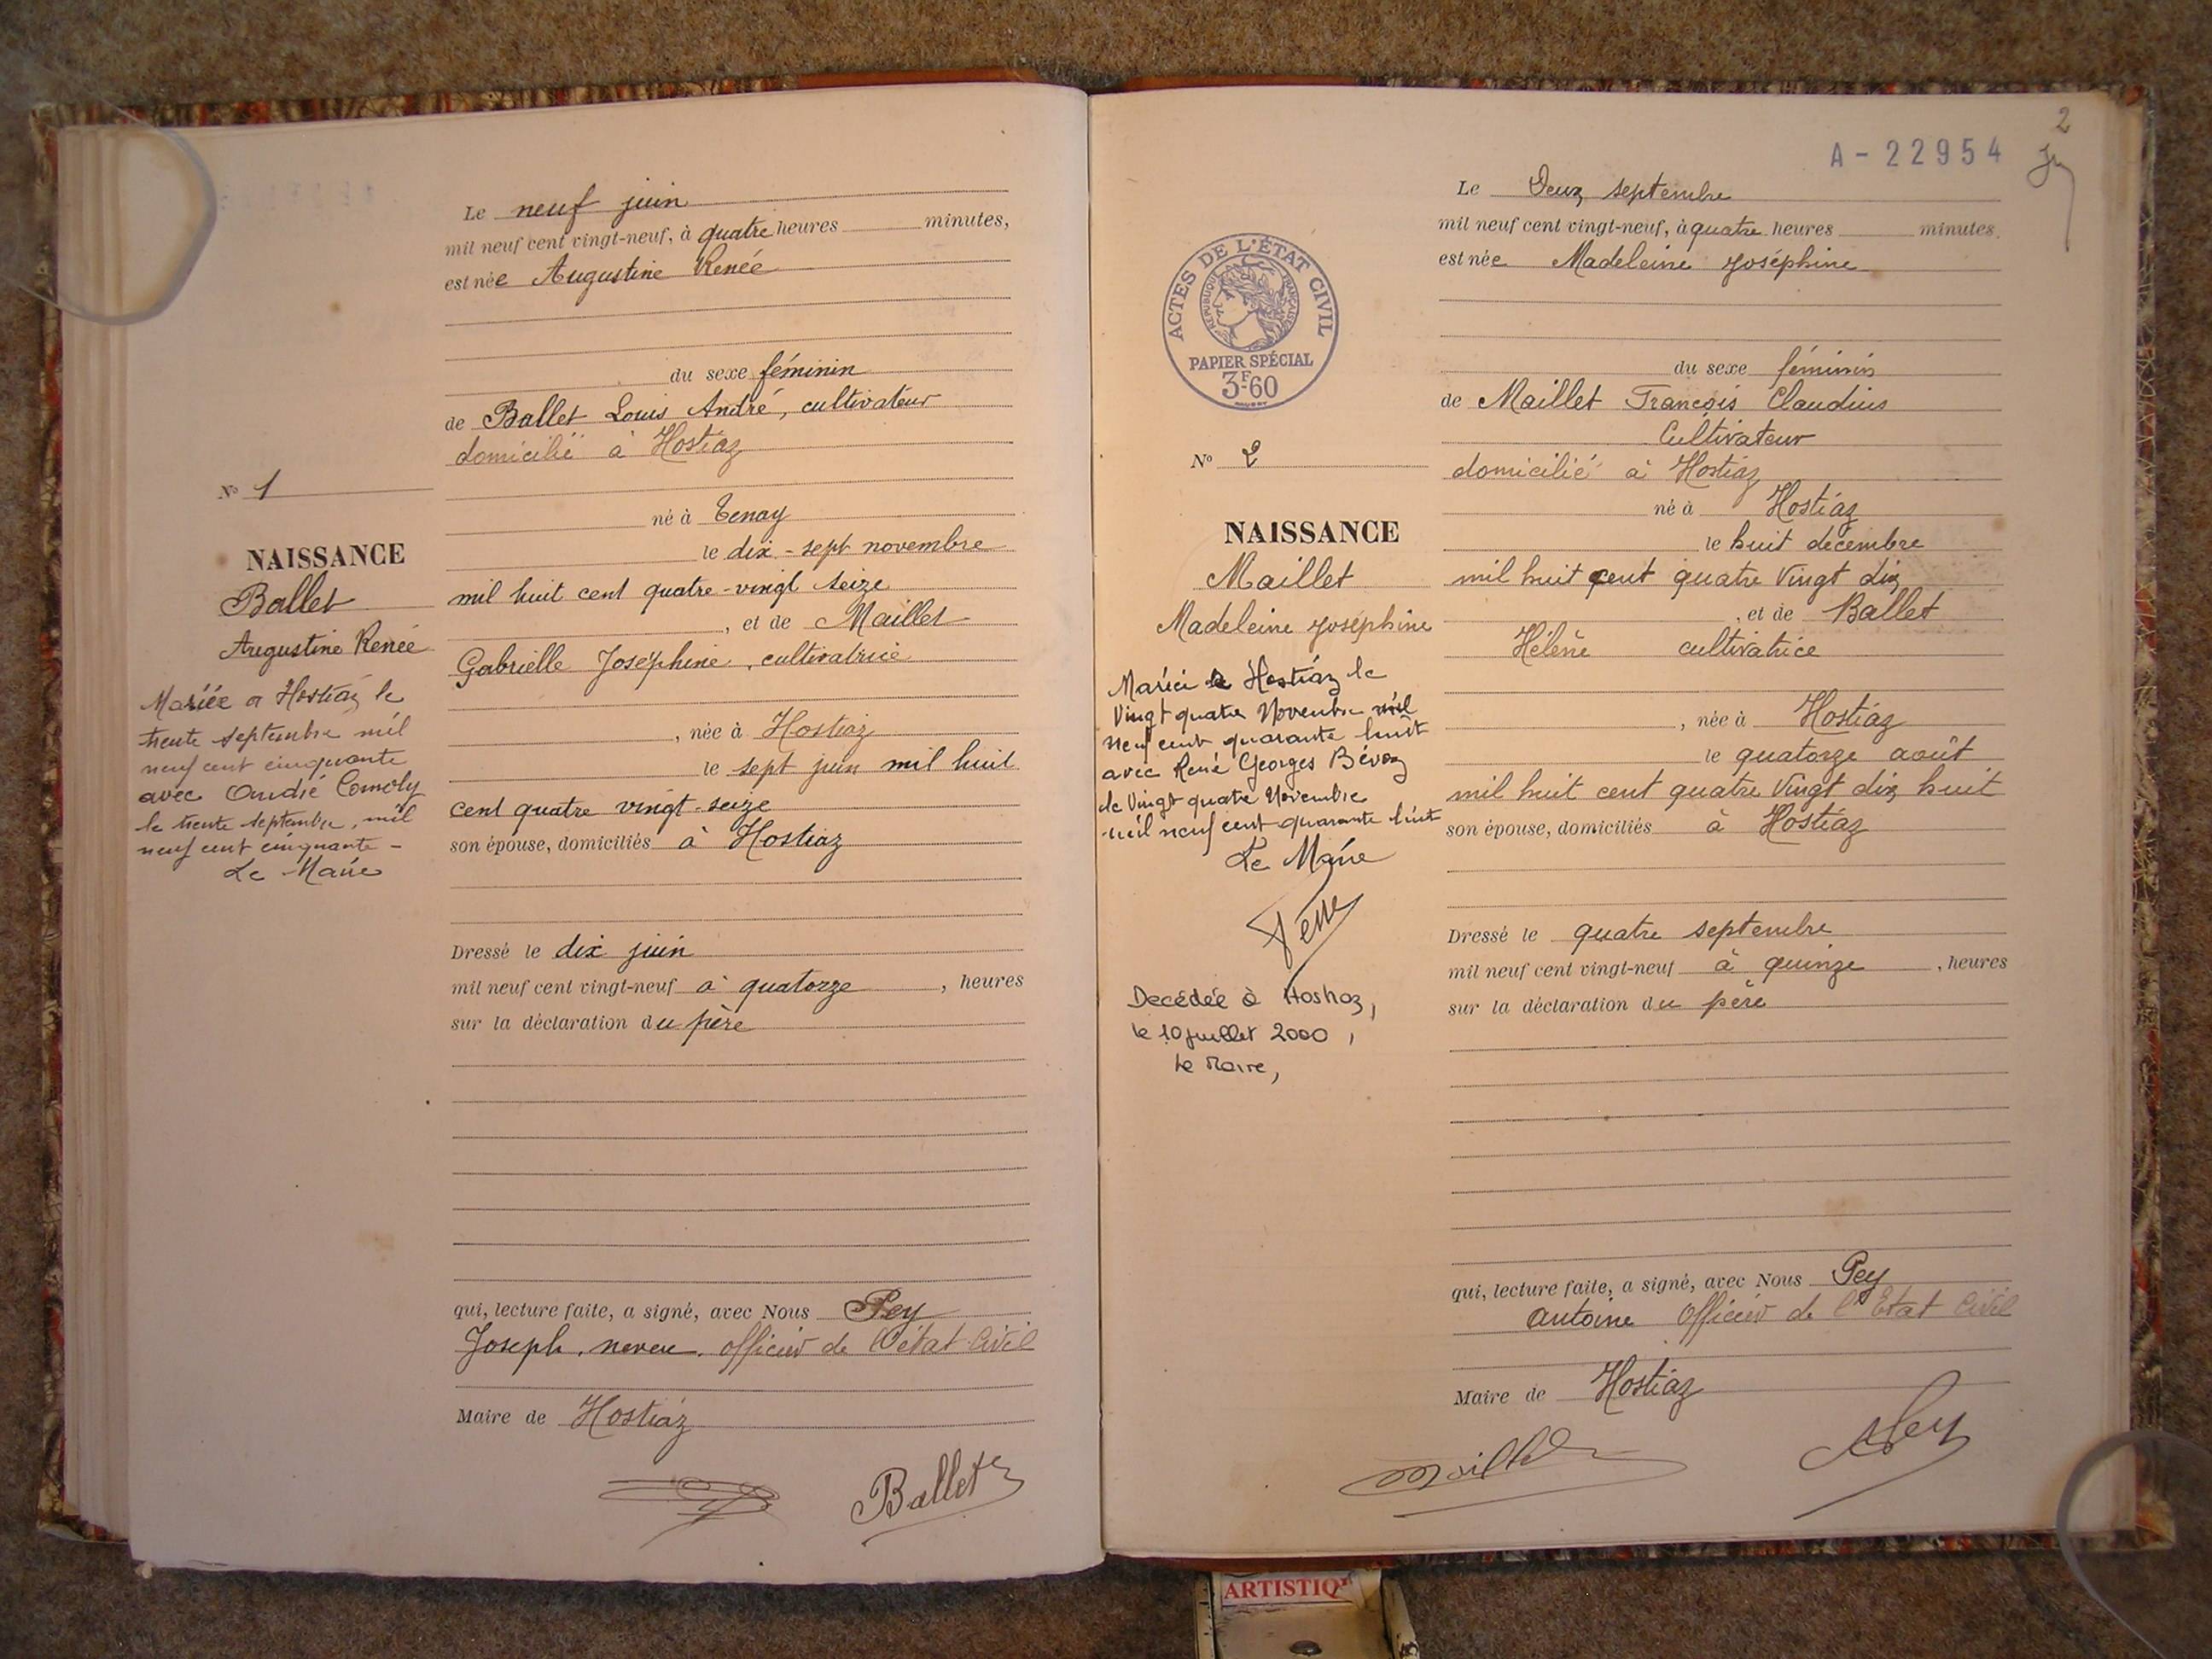 Le neuf juin
mil neuf cent vingt-neuf, à quatre heures minutes,
est née Augustine Renée
du sexe féminin
de Ballet Louis André, cultivateur
domicilié à Hostiaz
N° 1
né à Tenay
le dix-sept novembre
NAISSANCE
mil huit cent quatre-vingt seize
Ballet
, et de Maillet
Augustine Renée
Gabrielle Joséphine, cultivatrice
Mariée a Hostiaz le
trente septembre mil
neuf cent cinquante
avec André Comoly
le trente septembre, mil
neuf cent cinquante -
Le Maire
, née à Hostiaz
le sept juin mil huit
cent quatre vingt-seize
son épouse, domiciliés à Hostiaz
Dressé le dix juin
mil neuf cent vingt-neuf à quatorze , heures
sur la déclaration du père
qui, lecture faite, a signé, avec Nous Pey
Joseph, neveu, officier de l'état Civil
Maire de Hostiaz
Ballet
2
A-22954
Le Deux septembre
mil neuf cent vingt-neuf, à quatre heures minutes.
est née Madeleine Joséphine
ACTES DE L'ÉTAT CIVIL
RÉPUBLIQUE FRANÇAISE
PAPIER SPÉCIAL
3F60
du sexe féminin
de Maillet François Claudius
Cultivateur
N° 2
domicilié à Hostiaz
né à Hostiaz
NAISSANCE
le huit décembre
Maillet
mil huit cent quatre Vingt dix
Madeleine Joséphine
, et de Ballet
Hélène cultivatrice
Mariée à Hostiaz le
Vingt quatre Novembre mil
neuf cent quarante huit
avec René Georges Bévoz
le Vingt quatre Novembre
mil neuf cent quarante huit
Le Maire
, née à Hostiaz
le quatorze août
mil huit cent quatre Vingt dix huit
son épouse, domiciliés à Hostiaz
Décédée à Hostiaz,
le 10 juillet 2000,
Le Maire,
Dressé le quatre septembre
mil neuf cent vingt-neuf à quinze , heures
sur la déclaration du père
qui, lecture faite, a signé, avec Nous Pey
Antoine Officier de l'Etat Civil
Maire de Hostiaz
Maillet
APey
ARTISTIQ